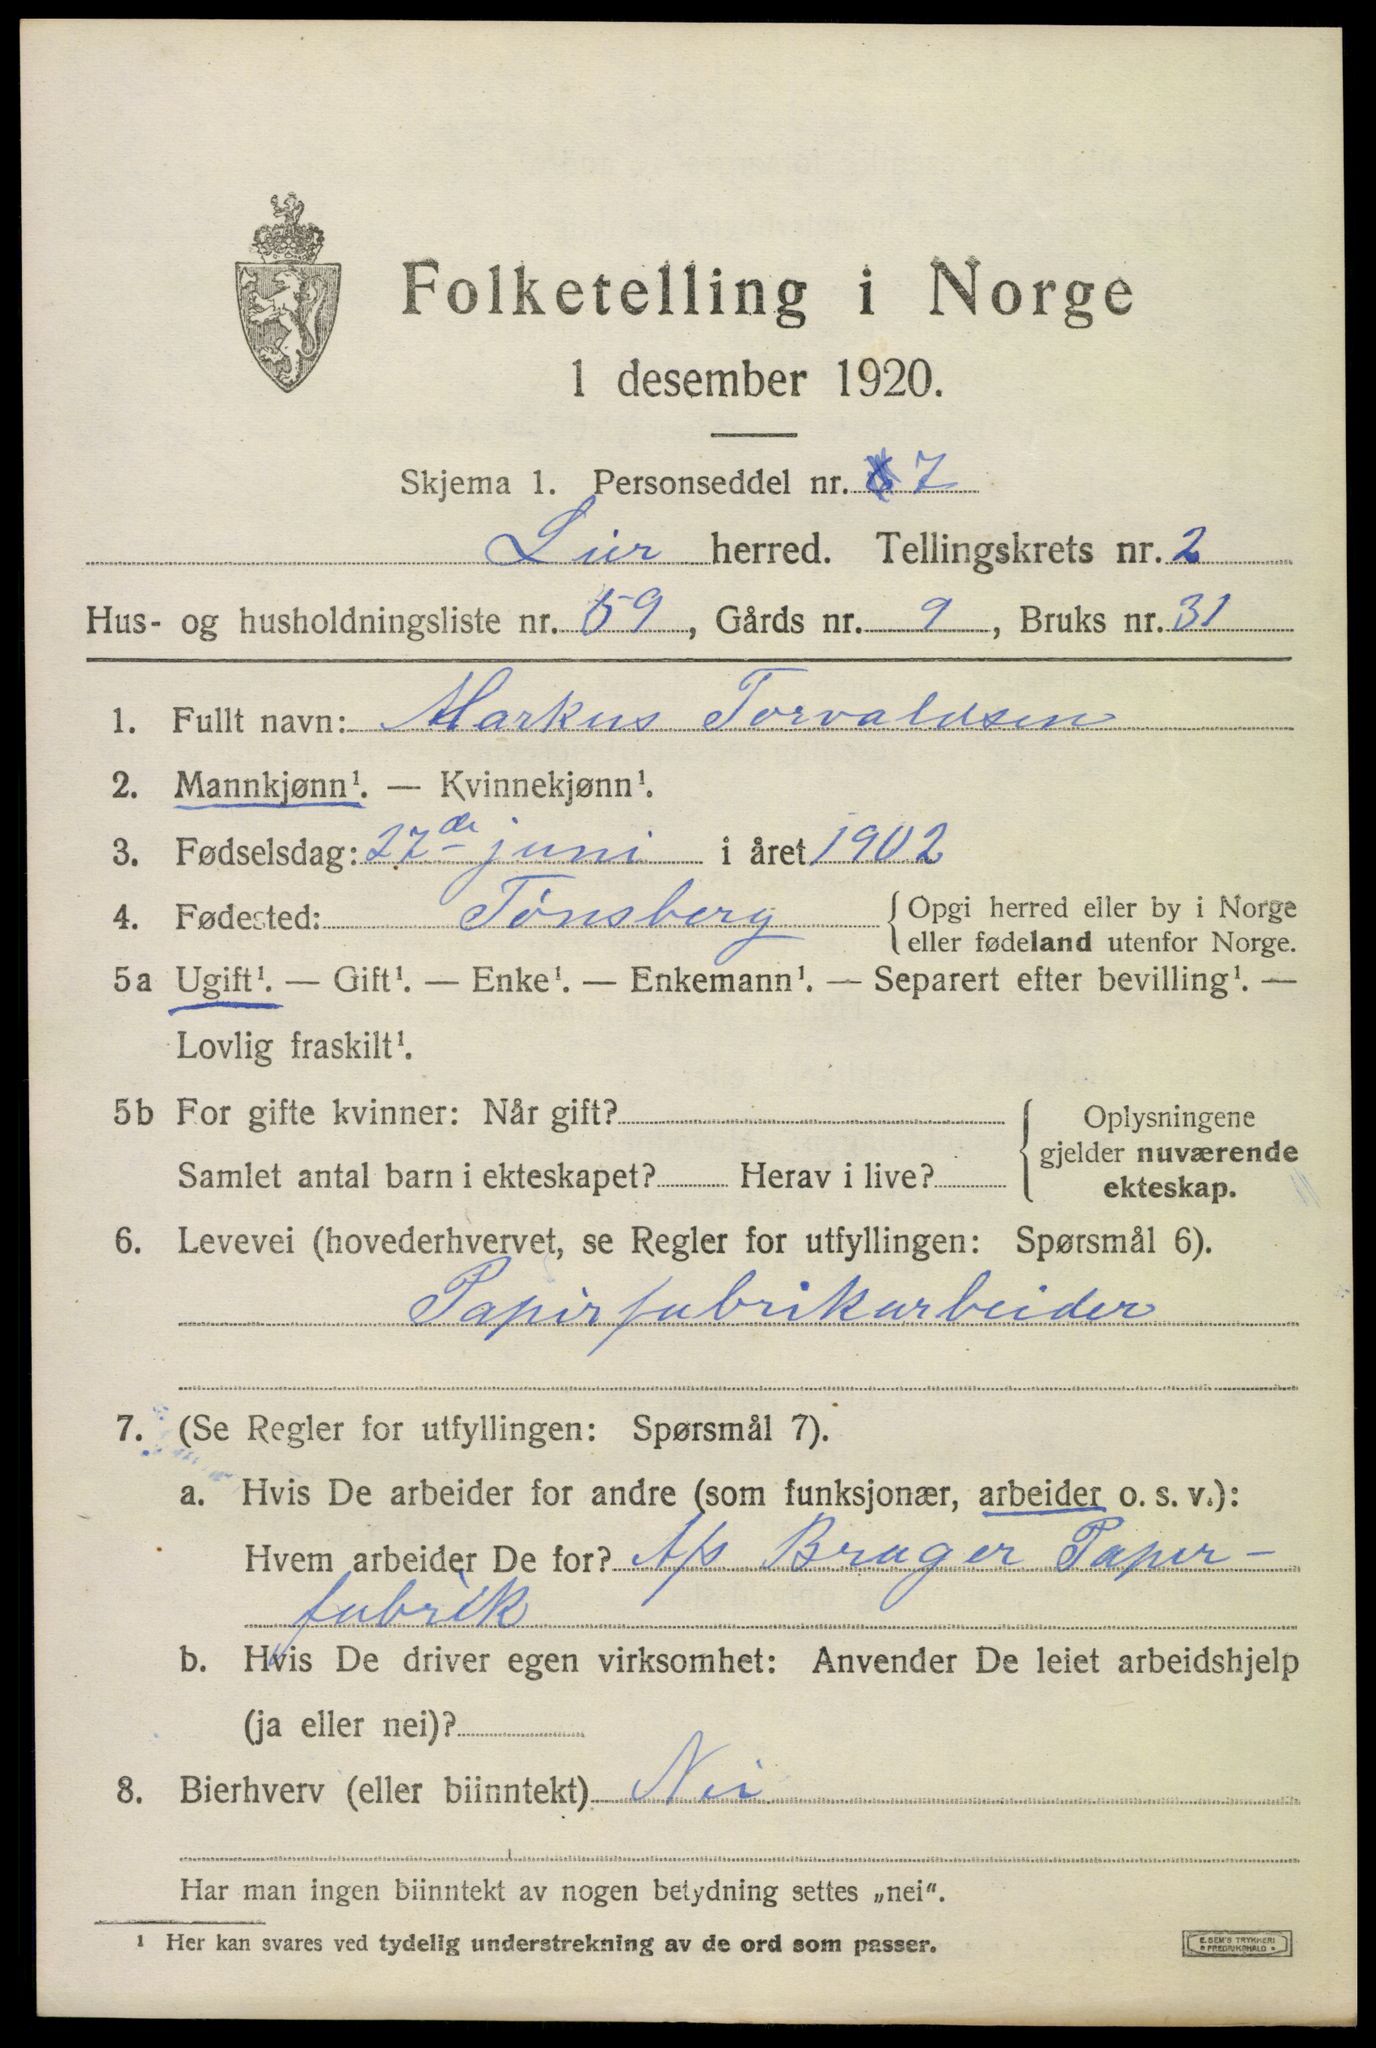 Folketelling i Norge
1 desember 1920.
Skjema 1. Personseddel nr. 7
Lier herred. Tellingskrets nr. 2
Hus- og husholdningsliste nr. 59, Gårds nr. 9, Bruks nr. 31
1. Fullt navn: Markus Torvaldsen
2. Mannkjønn¹. — Kvinnekjønn¹.
3. Fødselsdag: 27de juni i året 1902
4. Fødested: Tønsberg { Opgi herred eller by i Norge
eller fødeland utenfor Norge.
5a Ugift¹. — Gift¹. — Enke¹. — Enkemann¹. — Separert efter bevilling¹. —
Lovlig fraskilt¹.
5b For gifte kvinner: Når gift?
Samlet antal barn i ekteskapet? Herav i live?
Oplysningene
gjelder nuværende
ekteskap.
6. Levevei (hovederhvervet, se Regler for utfyllingen: Spørsmål 6).
Papirfabrikarbeider
7. (Se Regler for utfyllingen: Spørsmål 7).
a. Hvis De arbeider for andre (som funksjonær, arbeider o. s. v.):
Hvem arbeider De for? A/s Brager Papir-
fabrik
b. Hvis De driver egen virksomhet: Anvender De leiet arbeidshjelp
(ja eller nei)?
8. Bierhverv (eller biinntekt) Nei
Har man ingen biinntekt av nogen betydning settes „nei“.
¹ Her kan svares ved tydelig understrekning av de ord som passer.
E. SEM'S TRYKKERI
FREDRIKSHALD